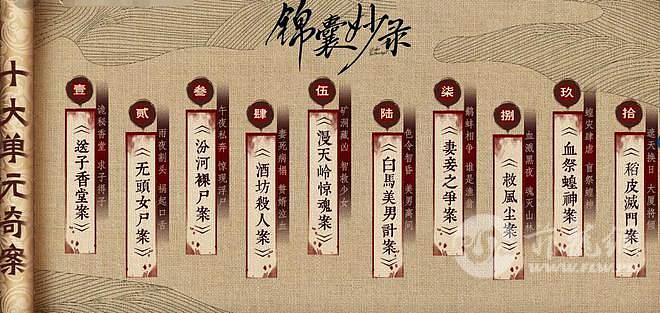 锦囊妙录
十大单元奇案
壹
诡秘香堂 求子得子
《送子香堂案》
贰
雨夜割头 祸起口舌
《无頭女尸案》
叁
午夜私奔 惊现浮尸
《汾河裸尸案》
肆
妻死病榻 赘婿泣血
《酒坊殺人案》
伍
矿洞藏凶 智救少女
《漫天岭惊魂案》
陆
色令智昏 美男离间
《白馬美男計案》
柒
鹬蚌相争 谁是渔翁
《妻妾之爭案》
捌
血溅黑夜 魂灭山林
《救風尘案》
玖
蝗虫肆虐 盲祭蝗神
《血祭蝗神案》
拾
遮天换日 大厦将倾
《稻皮滅門案》